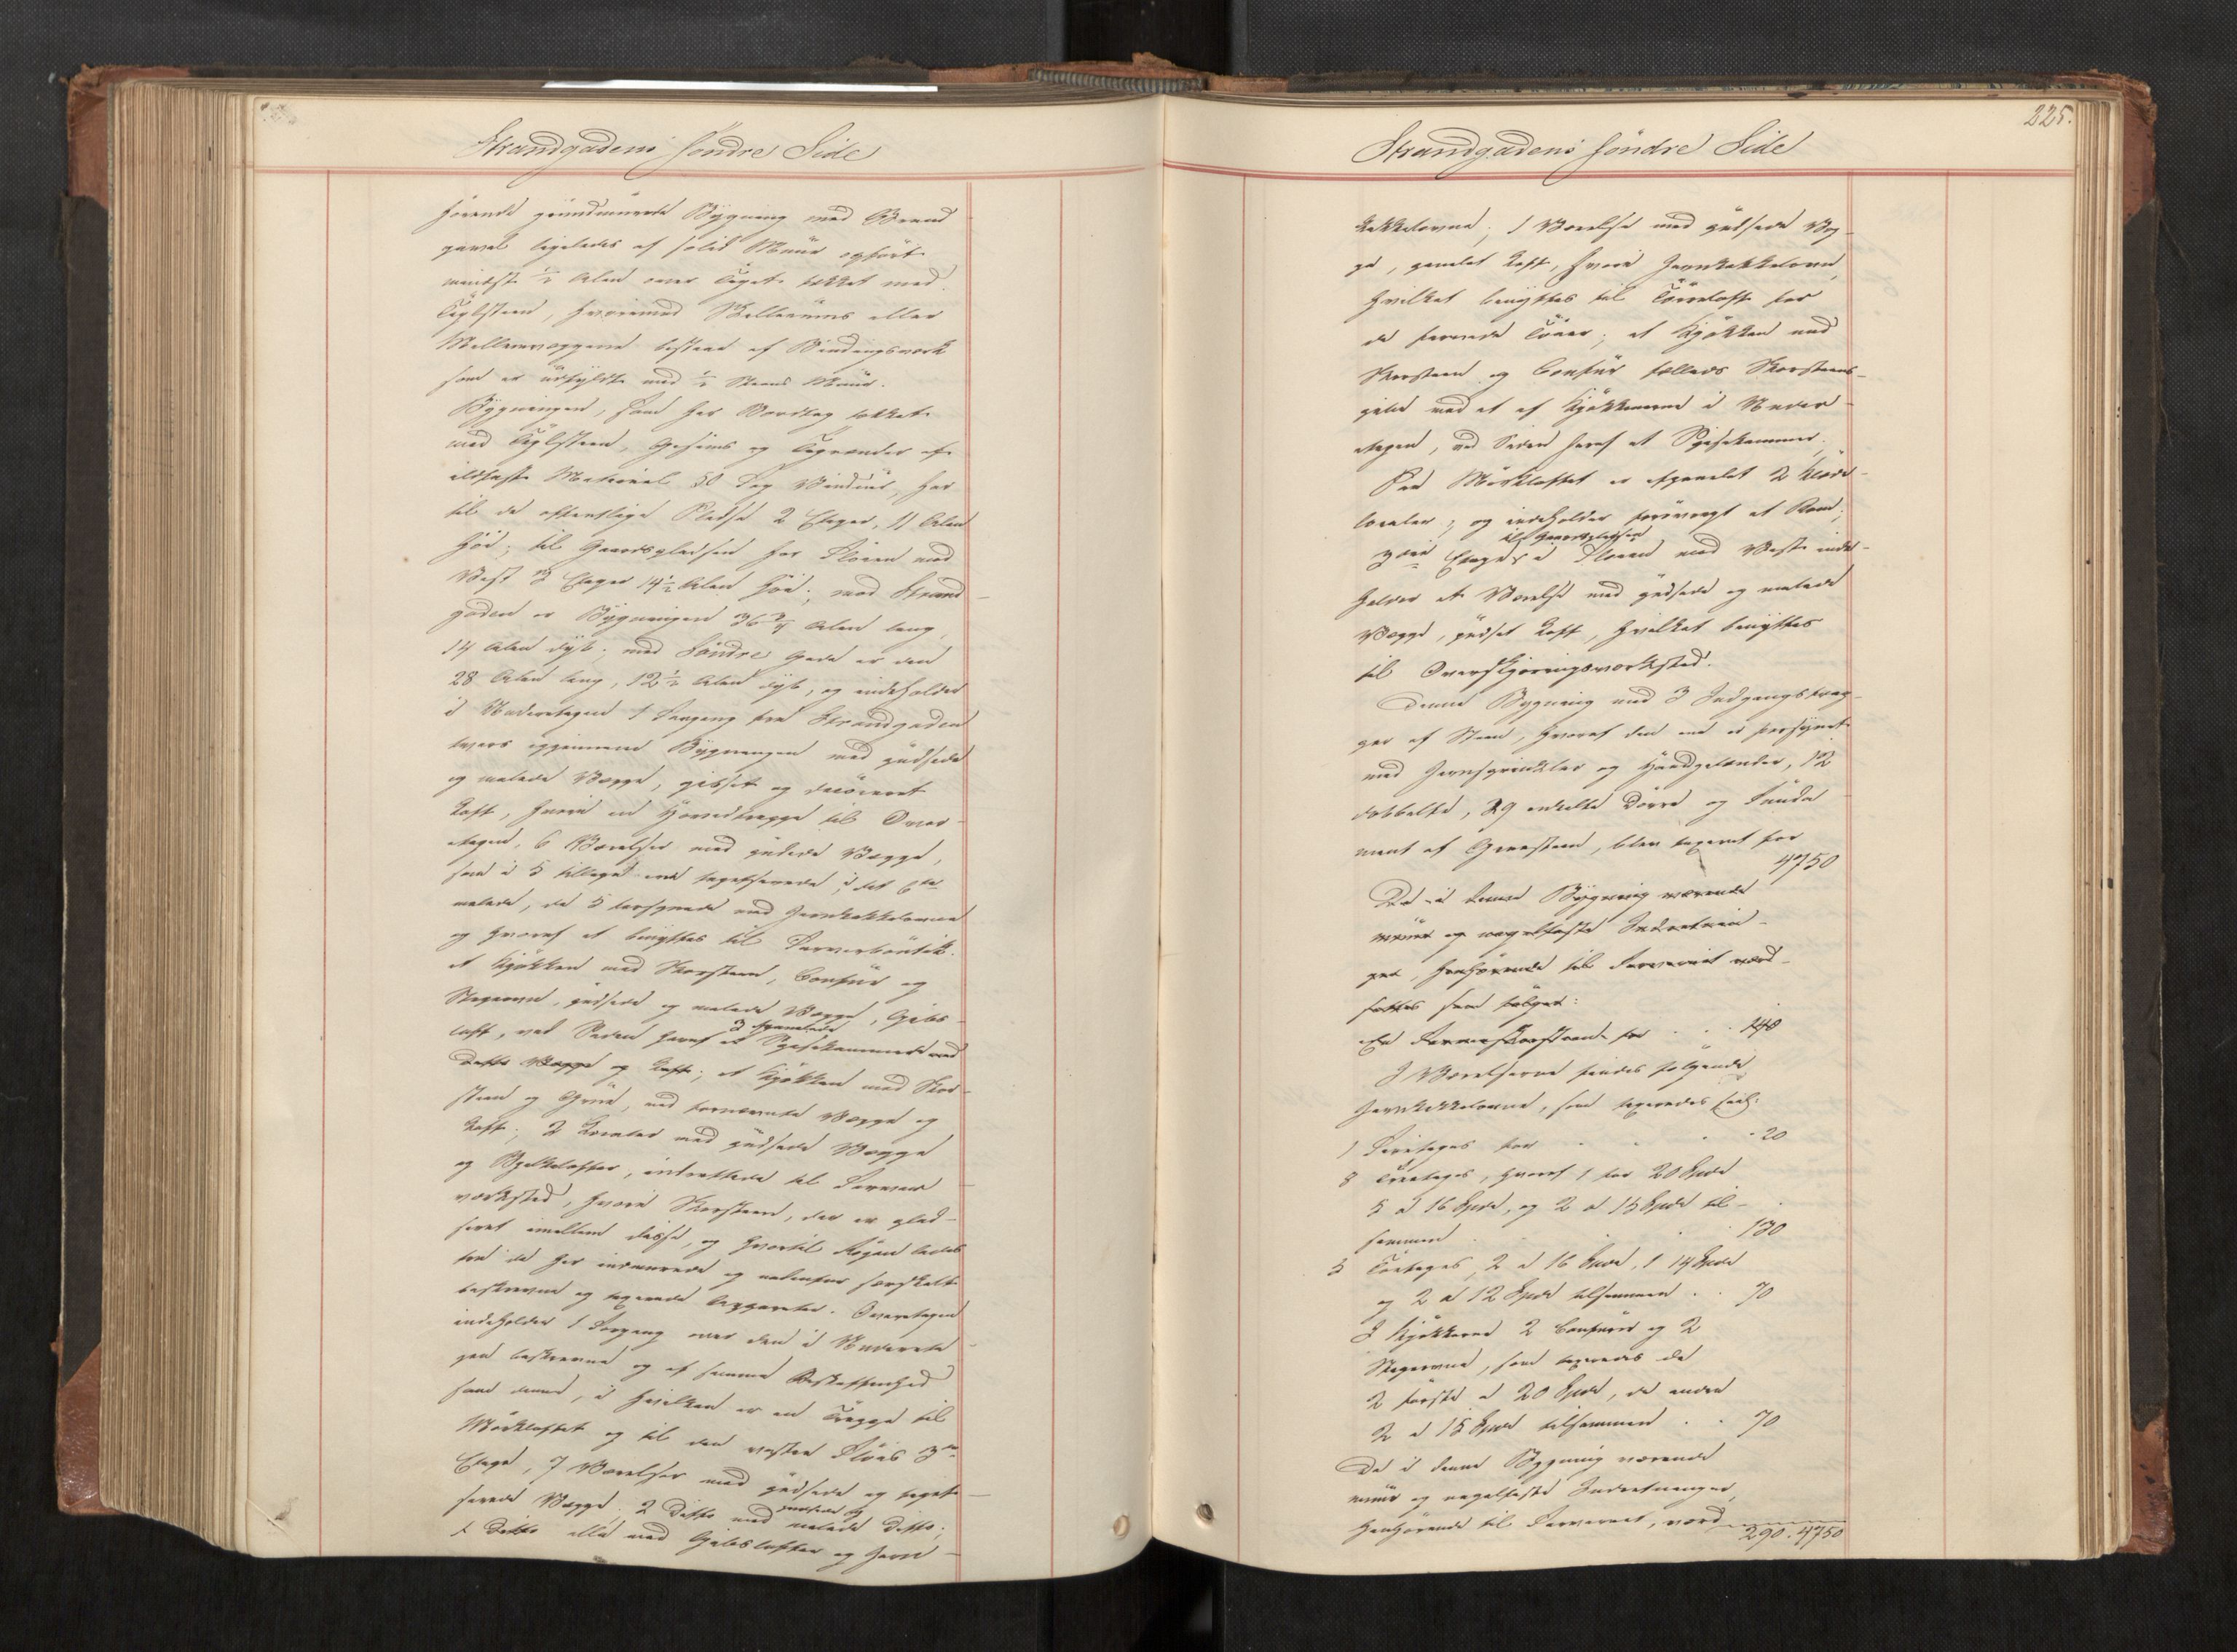 Strandgadens søndre Side
hørende grundmurede Bygning med Brand
gavel ligeledes af solid Muur opført
mindst ½ Alen over Taget tækket med
Tagsteen, hvorimod Mellemrums eller
Mellemvæggene bestaae af Bindingsværk
som er udfyldt med ½ Steens Muur.
Bygningen, som har Bordtag tækket
med Tagsteen, Gesims og Tagrender af
ildfast Material 30 Fag Vinduer, har
til de offentlige Pladse 2 Etager, 11 Alen
høi; til Gaardspladsen har Fløien mod
Vest 3 Etager 14½ Alen høi; mod Strand-
gaden er Bygningen 36¾ Alen lang,
14 Alen dyb; mod Søndre Gade er den
28 Alen lang, 12½ Alen dyb, og indeholder
i Underetagen 1 Forgang fra Strandgaden
tvers igjennem Bygningen med gibsede
og malede Vægge, gibset og decoreret
Loft, hvori en Hovedtrappe til Over-
etagen, 6 Værelser med gibsede Vægge,
som i 5 tillige ere tapetserede i det 6te
malede, de 5 forsynede med Jernkakkelovne
og hvoraf et benyttes til Farverboutik.
et Kjøkken med Skorsteen, Comfur og
Stegeovn, gibsede og malede Vægge, Gibs-
loft, ved Siden heraf et Spisekammer med
3 panelede
ditto Vægge og Loft; et Kjøkken med Skor-
steen og Grue, med fornævnte Vægge og
Loft; 2 Locale med gibsede Vægge
og Bjelkelofter, indrettede til Farver-
værksted, hvori Skorsteen, der er plad-
seret imellem disse, og hvortil Røgen ledes
fra de her indmurede og nedenfor særskilt
beskrevne og taxerede Apparater. Overetagen
indeholder 1 Forgang over den i Undereta-
gen beskrevne og af samme Beskaffenhed
som denne, i hvilken er en Trappe til
Mørkloftet og til den vestre Fløis 3die
Etage, 7 Værelser med gibsede og tapet-
serede Vægge, 2 Ditto med malede Ditto;
gibsede og
1 Ditto alle med Gibslofter og Jern-
225.
Strandgadens søndre Side
kakkelovne; 1 Værelse med gibsede Væg-
ge, panelet Loft, hvori Jernkakkelovn,
hvilket benyttes til Tørreloft for
de farvede Tøier; et Kjøkken med
Skorsteen og Comfur fælleds Skorsteens-
pibe med et af Kjøkkenerne i Under-
etagen, ved Siden heraf et Spisekammer.
Paa Mørkloftet er afpanelet 2 Klæde-
localer, og indeholder forøvrigt et Rum;
til Gaardspladsen
3die Etage i Fløien mod Vest inde-
holder et Værelse med gibsede og malede
Vægge, gibset Loft, hvilket benyttes
til Overskjæringsværksted.
Denne Bygning med 3 Indgangstrap-
per af Steen, hvoraf den ene er forsynet
med Jernsprinkler og Haandgelænder, 12
dobbelte, 29 enkelte Dørre og Funda-
ment af Graasteen, blev taxeret for
4750
De i denne Bygning værende
muur og nagelfaste Indretnin-
ger, henhørende til Farveriet værd-
sættes som følger:
En Farveskorsteen for . . . 140
I Værelserne findes følgende
Jernkakkelovne, som taxeredes saal:
1 Fireetages for . . . 20
8 Treetages, hvoraf 1 for 20 Spdr
5 à 16 Spdr, og 2 à 15 Spdr til-
sammen . . . 130
5 Toetages, 2 à 16 Spdr, 1 14 Spdr
og 2 à 12 Spdr tilsammen . . 70
I Kjøkkene 2 Comfurer og 2
Stegeovne, som taxeredes de
2 første à 20 Spdr, de anden
2 à 15 Spdr tilsammen . . 70
De i denne Bygning værende
muur og nagelfaste Indretninger,
henhørende til Farveriet, værd
290. 4750